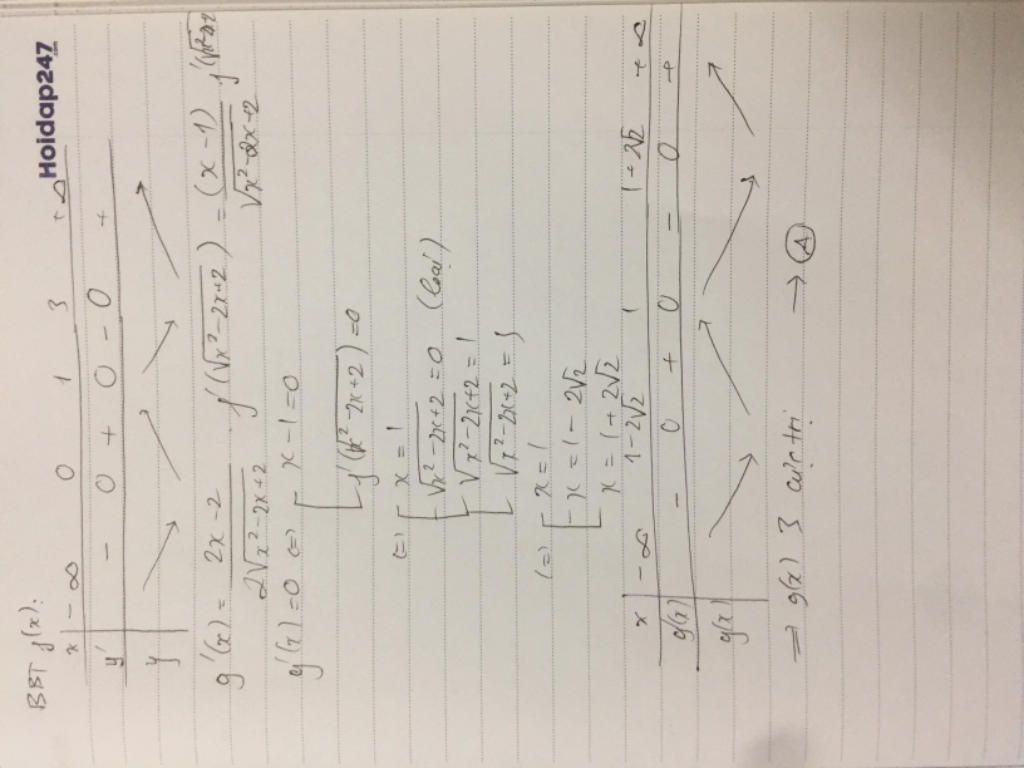 Hoidap247
BBT f(x):
x -∞ 0 1 3 +∞
y' - 0 + 0 - 0 +
y
g'(x) = (2x-2)/(2√(x²-2x+2)) . f'(√(x²-2x+2)) = (x-1)/√(x²-2x+2) . f'(√(x²-2x
g'(x)=0 (=) [ x-1=0
f'(√(x²-2x+2))=0
(=) [ x=1
√(x²-2x+2)=0 (loại)
√(x²-2x+2)=1
√(x²-2x+2)=3
(=) [ x=1
x=1-2√2
x=1+2√2
x -∞ 1-2√2 1 1+2√2 +∞
g'(x) - 0 + 0 - 0 +
g(x)
=> g(x) 3 cực trị → A